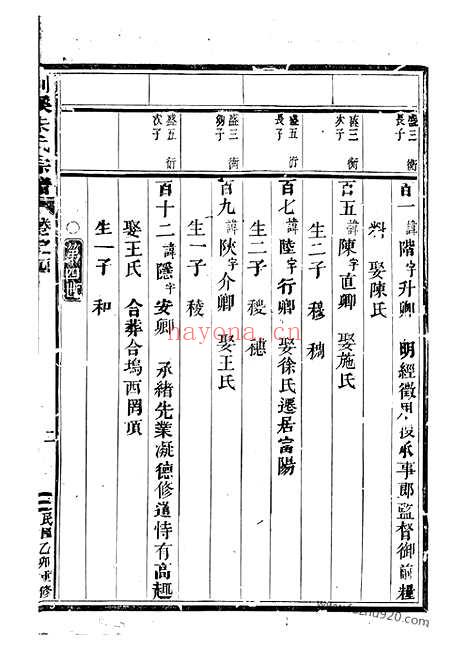 盛三衍長子
百一 諱階字升卿 明經徵 授承事郎監督御前糧
料 娶陳氏
盛三衍次子
百五 諱陳字直卿 娶施氏
生二子 穆 稠
盛五衍長子
百七 諱陸字行卿 娶徐氏遷居富陽
生二子 稷 穗
盛三衍幼子
百九 諱陝字介卿 娶王氏
生一子 稜
盛五衍次子
百十二 諱隱字安卿 承緒先業凝德修道恃有高趣
娶王氏 合葬合塢西岡頂
生一子 和
○ 第四世
剡溪朱氏宗譜
二
民國乙卯重修
hayona.cn